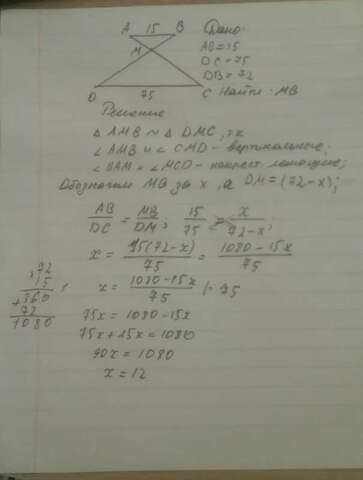 A 15 B
M
D 75 C
Дано:
AB = 15
DC = 75
DB = 72
Найти: MB
Решение
△ AMB ~ △ DMC, тк
∠ AMB и ∠ CMD - вертикальные;
∠ BAM = ∠ MCD - накрест лежащие;
Обозначим MB за x, а DM = (72 - x);
AB/DC = MB/DM; 15/75 = x/72-x;
x = 15(72-x)/75 = 1080-15x/75
x = 1080-15x/75 | · 75
75x = 1080 - 15x
75x + 15x = 1080
90x = 1080
x = 12
×72
15
+360
72
1080